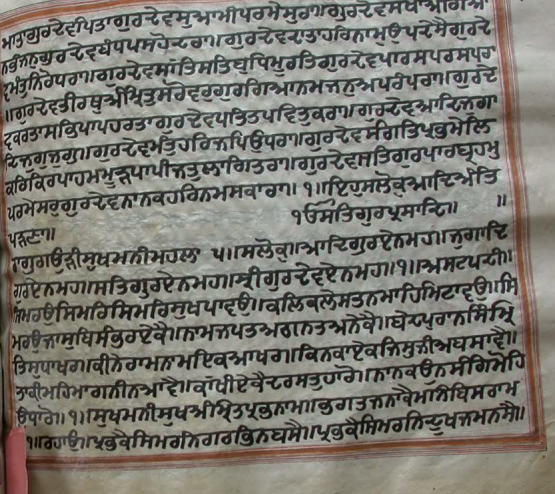 ਮਾਤਾਗੁਰਦੇਵਪਿਤਾਗੁਰਦੇਵਸੁਆਮੀਪਰਮੇਸੁਰਾ॥ਗੁਰਦੇਵਸਖਾਅਗਿਆ
ਨਭੰਜਨੁਗੁਰਦੇਵਬੰਧਪਸਹੋਦਰਾ॥ਗੁਰਦੇਵਦਾਤਾਹਰਿਨਾਮੁਉਪਦੇਸੈਗੁਰਦੇ
ਵਮੰਤੁਨਿਰੋਧਰਾ॥ਗੁਰਦੇਵਸਾਂਤਿਸਤਿਬੁਧਿਮੂਰਤਿਗੁਰਦੇਵਪਾਰਸਪਰਸਪਰਾ
॥ਗੁਰਦੇਵਤੀਰਥੁਅੰਮ੍ਰਿਤਸਰੋਵਰੁਗੁਰਗਿਆਨਮਜਨੁਅਪਰੰਪਰਾ॥ਗੁਰਦੇ
ਵਕਰਤਾਸਭਿਪਾਪਹਰਤਾਗੁਰਦੇਵਪਤਿਤਪਵਿਤਕਰਾ॥ਗੁਰਦੇਵਆਦਿਜੁਗਾ
ਦਿਜੁਗੁਜੁਗੁ॥ਗੁਰਦੇਵਮੰਤੁਹਰਿਜਪਿਉਧਰਾ॥ਗੁਰਦੇਵਸੰਗਤਿਪ੍ਰਭਮੇਲਿ
ਕਰਿਕਿਰਪਾਹਮਮੂੜਪਾਪੀਜਤੁਲਾਗਿਤਰਾ॥ਗੁਰਦੇਵਸਤਿਗੁਰੁਪਾਰਬ੍ਰਹਮੁ
ਪਰਮੇਸਰੁਗੁਰਦੇਵਨਾਨਕਹਰਿਨਮਸਕਾਰਾ॥੧॥ਇਹੁਸਲੋਕੁਆਦਿਅੰਤਿ
ਪੜਣਾ॥ ੧ਓਸਤਿਗੁਰਪ੍ਰਸਾਦਿ॥ ॥
ਰਾਗੁਗਉੜੀਸੁਖਮਨੀਮਹਲਾ ੫॥ਸਲੋਕੁ॥ਆਦਿਗੁਰਏਨਮਹ॥ਜੁਗਾਦਿ
ਗੁਰਏਨਮਹ॥ਸਤਿਗੁਰਏਨਮਹ॥ਸ੍ਰੀਗੁਰਦੇਵਏਨਮਹ॥੧॥ਅਸਟਪਦੀ॥
ਸਿਮਰਉਸਿਮਰਿਸਿਮਰਿਸੁਖਪਾਵਉ॥ਕਲਿਕਲੇਸਤਨਮਾਹਿਮਿਟਾਵਉ॥ਸਿ
ਮਰਉਜਾਸੁਬਿਸੰਭਰਏਕੈ॥ਨਾਮਜਪਤਅਗਨਤਅਨੇਕੈ॥ਬੇਦਪੁਰਾਨਸਿੰਮ੍ਰਿ
ਤਿਸੁਧਾਖਰਾ॥ਕੀਨੇਰਾਮਨਾਮਇਕਆਖਰਾ॥ਕਿਨਕਾਏਕਜਿਸੁਜੀਅਬਸਾਵੈ॥
ਤਾਕੀਮਹਿਮਾਗਨੀਨਆਵੈ॥ਕਾਂਖੀਏਕੈਦਰਸਤੁਹਾਰੋ॥ਨਾਨਕਉਨਸੰਗਿਮੋਹਿ
ਉਧਾਰੋ॥੧॥ਸੁਖਮਨੀਸੁਖਅੰਮ੍ਰਿਤਪ੍ਰਭਨਾਮ॥ਭਗਤਜਨਾਕੈਮਨਿਬਿਸਰਾਮ
॥੧॥ਰਹਾਉ॥ਪ੍ਰਭਕੈਸਿਮਰਨਿਗਰਭਿਨਬਸੈ॥ਪ੍ਰਭਕੈਸਿਮਰਨਿਦੂਖੁਜਮੁਨਸੈ॥